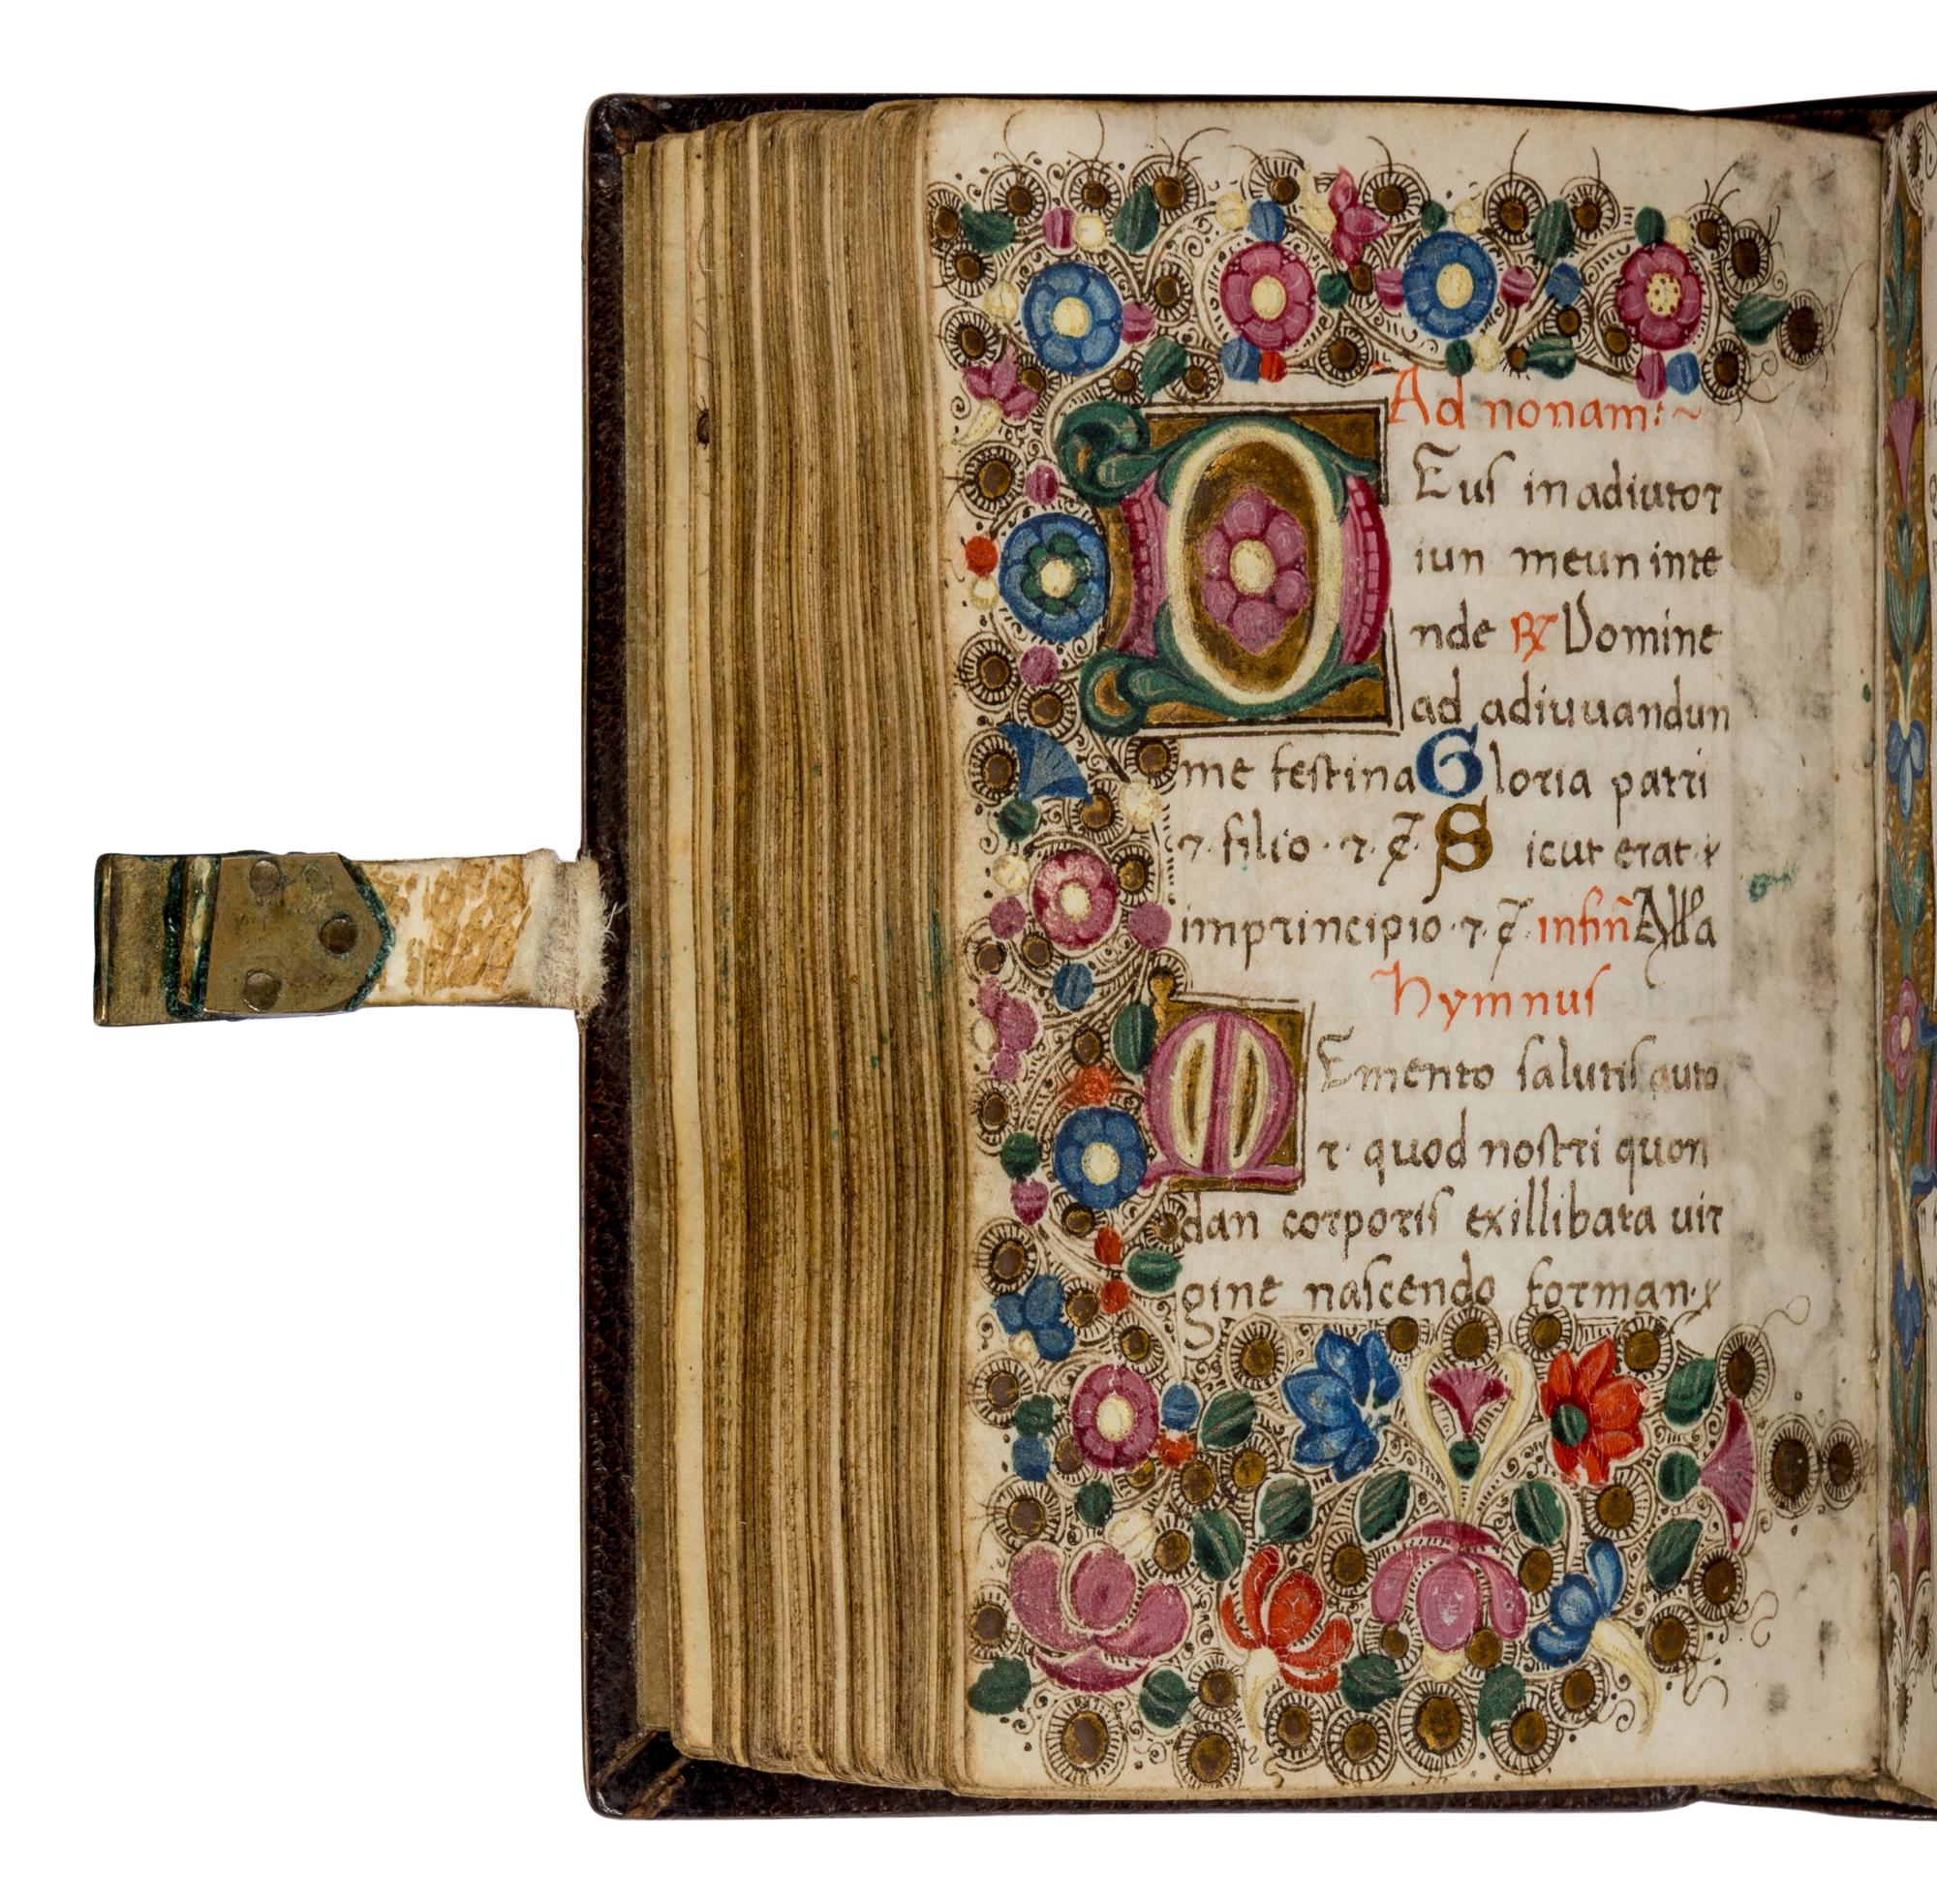 Ad nonam:~
DEus in adiutor
iun meun inte
nde ℟ Domine
ad adiuuandun
me festina Gloria patri
⁊ filio · ⁊ ꝯ̃ · Sicut erat ·
imprincipio · ⁊ ꝯ̃ · infin̄ Alla
Hymnus
MEmento salutis auto
r · quod nostri quon
dan corporis exillibata uir
gine nascendo forman·